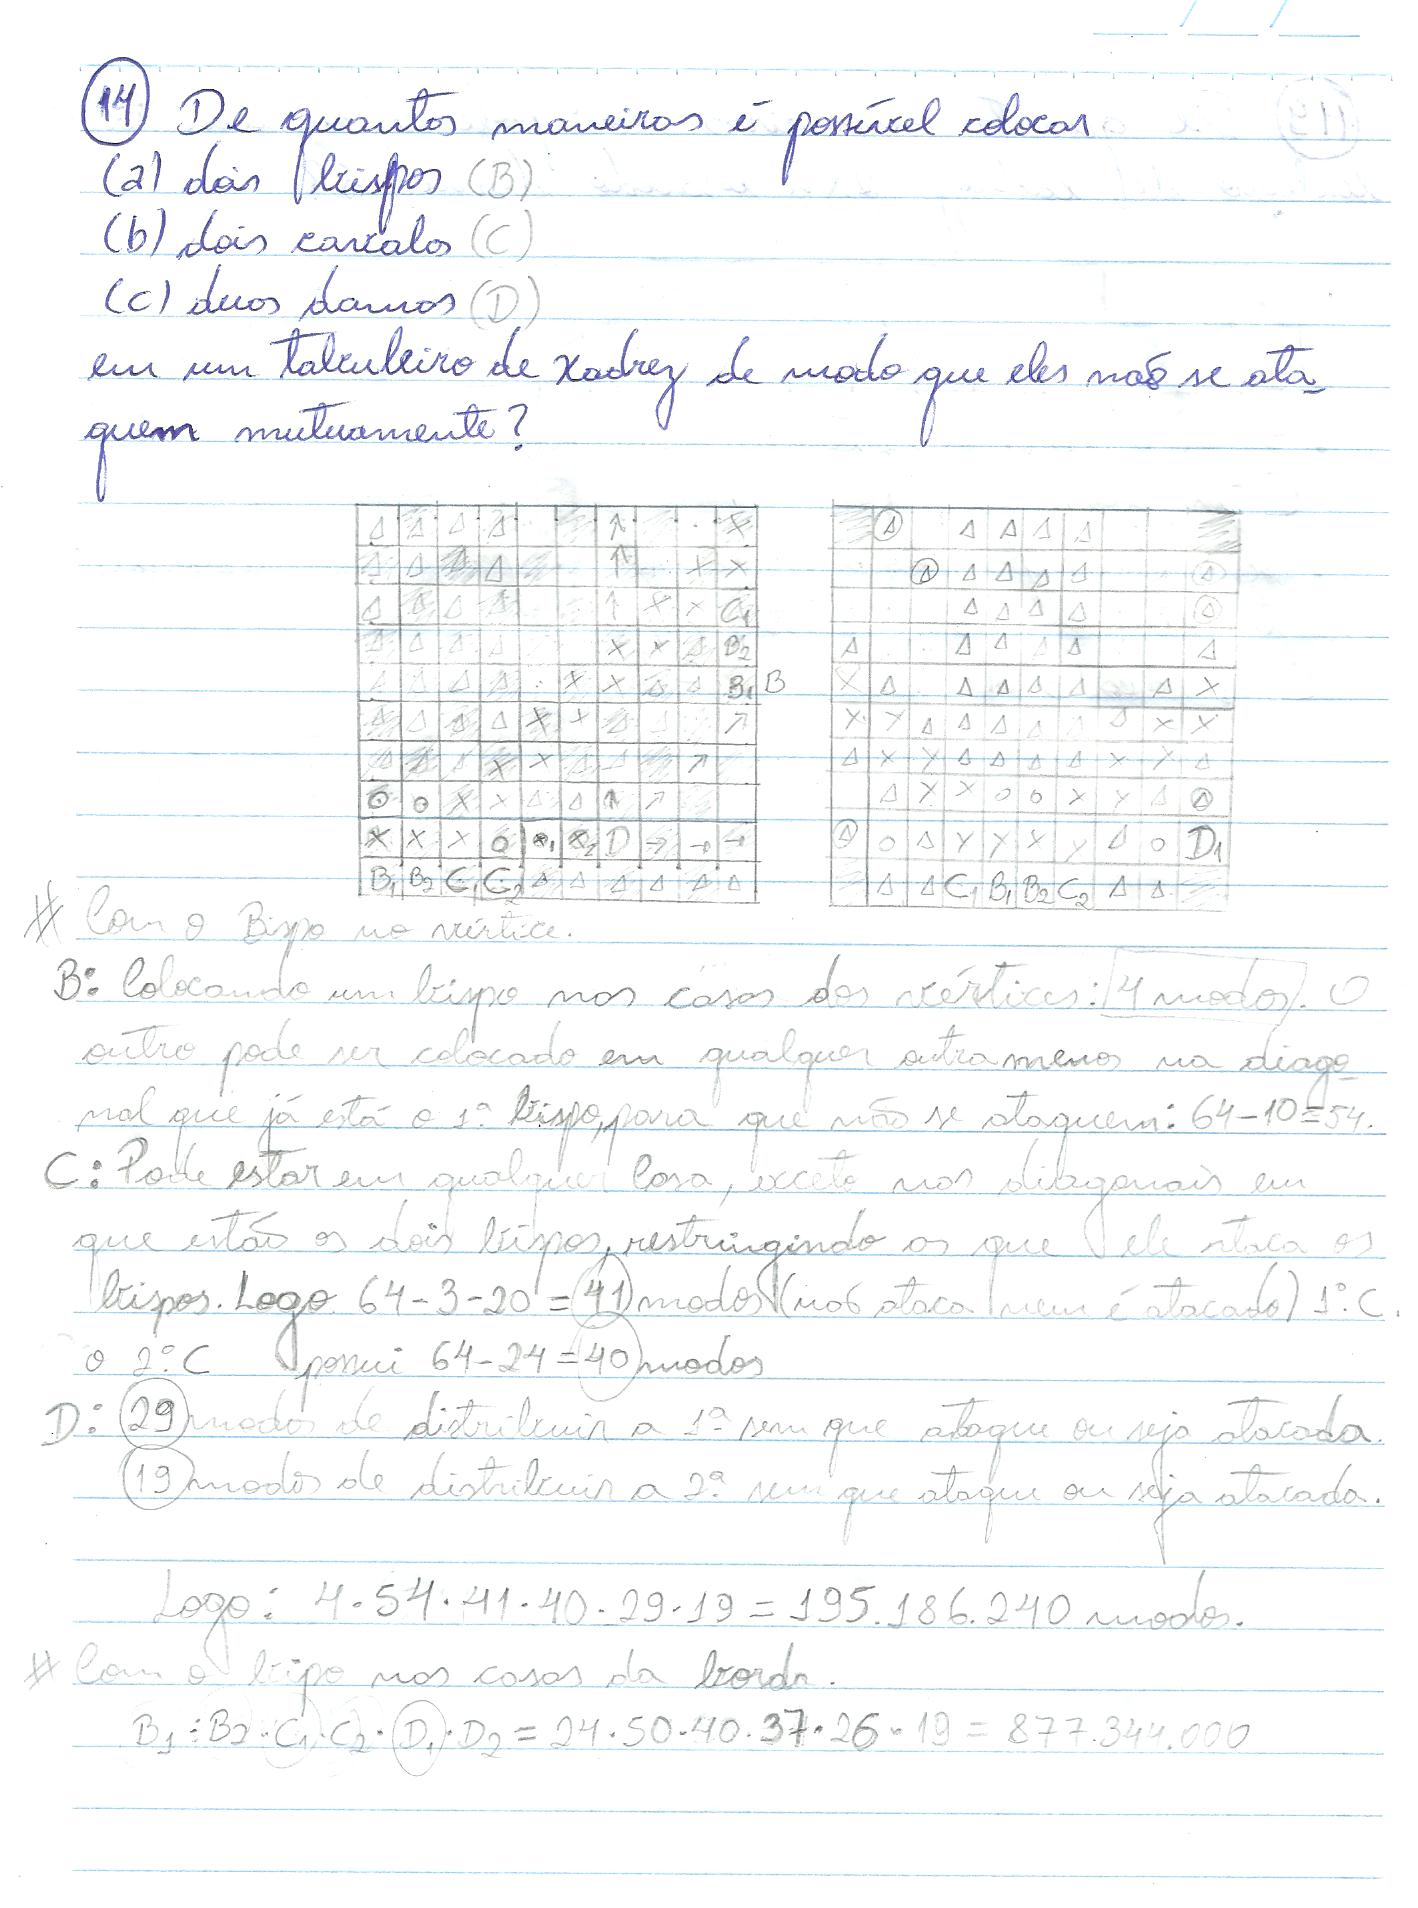 14 De quantas maneiras é possível colocar
(a) dois bispos (B)
(b) dois cavalos (C)
(c) duas damas (D)
em um tabuleiro de xadrez de modo que eles não se ata-
quem mutuamente?
# Com o Bispo no vértice.
B: Colocando um bispo nas casas dos vértices: 4 modos. O
outro pode ser colocado em qualquer outra menos na diago-
nal que já está o 1º bispo, para que não se ataquem: 64-10=54.
C: Pode estar em qualquer casa, exceto nas diagonais em
que estão os dois bispos, restringindo as que ele ataca os
bispos. Logo 64-3-20=41 modos (não ataca nem é atacado) 1º C.
o 2º C possui 64-24=40 modos
D: 29 modos de distribuir a 1ª sem que ataque ou seja atacada.
19 modos de distribuir a 2ª sem que ataque ou seja atacada.
Logo: 4·54·41·40·29·19=195.186.240 modos.
# Com o bipo nas casas da borda.
B1·B2·C1·C2·D1·D2=24·50·40·37·26·19=877.344.000